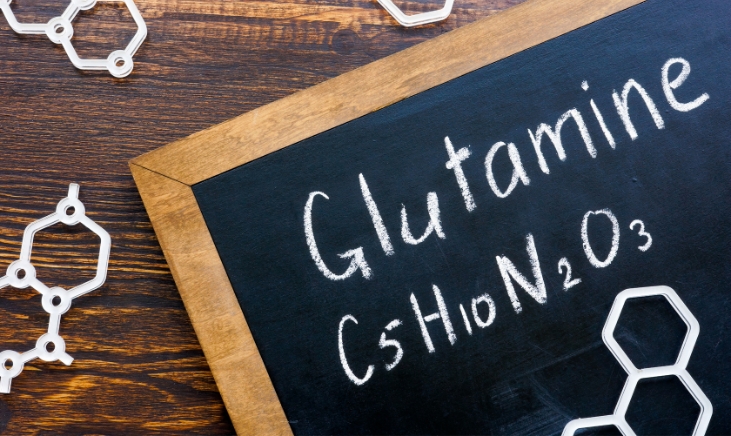 Glutamine
C5H10N2O3